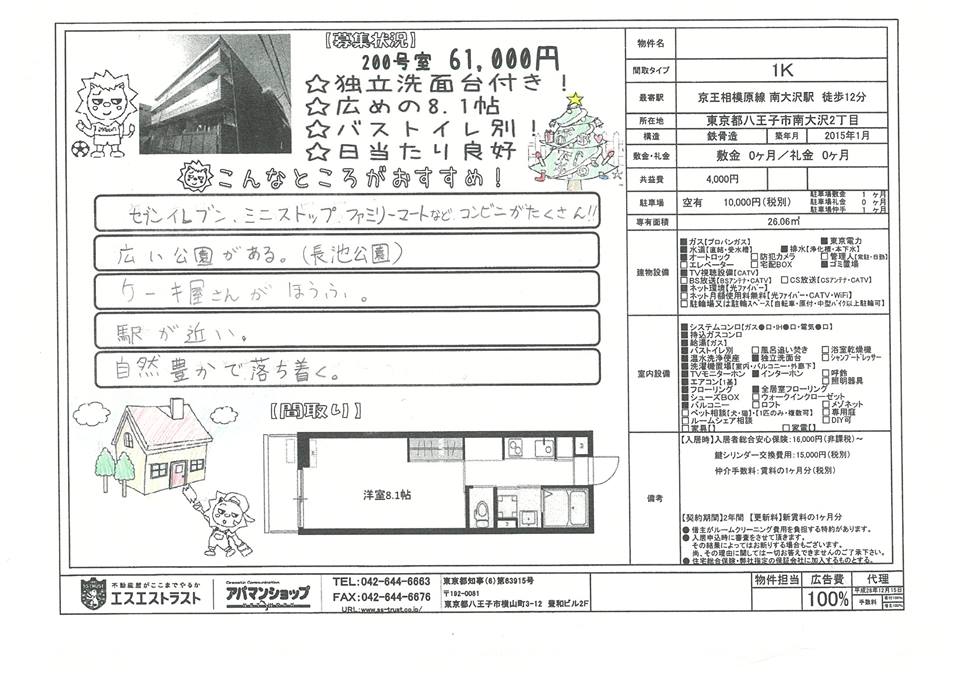 【募集状況】
200号室 61,000円
☆独立洗面台付き！
☆広めの8.1帖
☆バストイレ別！
☆日当たり良好
こんなところがおすすめ！
セブンイレブン、ミニストップ、ファミリーマートなど、コンビニがたくさん!!
広い公園がある。(長池公園)
ケーキ屋さんがほうふ。
駅が近い。
自然豊かで落ち着く。
【間取り】
洋室8.1帖
物件名
間取タイプ 1K
最寄駅 京王相模原線 南大沢駅 徒歩12分
所在地 東京都八王子市南大沢2丁目
構造 鉄骨造 築年月 2015年1月
敷金・礼金 敷金 0ヶ月／礼金 0ヶ月
共益費 4,000円
駐車場 空有 10,000円(税別)
駐車場敷金 1 ヶ月
駐車場礼金 0 ヶ月
駐車場仲手 1 ヶ月
専有面積 26.06㎡
建物設備
■ガス【プロパンガス】 ■東京電力
■水道【直結・受水槽】 ■排水【浄化槽・本下水】
■オートロック □防犯カメラ □管理人【常駐・日勤】
□エレベーター □宅配BOX ■ゴミ置場
■TV視聴設備【CATV】
□BS放送【BSアンテナ・CATV】 □CS放送【CSアンテナ・CATV】
■ネット環境【光ファイバー】
□ネット月額使用料無料【光ファイバー・CATV・WiFi】
□駐輪場又は駐輪スペース【自転車・原付・中型バイク以上駐輪可】
室内設備
■システムコンロ【ガス●口・IH●口・電気●口】
■持込ガスコンロ
■給湯【ガス】
■バストイレ別 □風呂追い焚き □浴室乾燥機
■温水洗浄便座 ■独立洗面台 □シャンプードレッサー
■洗濯機置場【室内・バルコニー・外廊下】
■TVモニターホン ■インターホン □呼鈴
■エアコン【1基】 □照明器具
■フローリング ■全居室フローリング
■シューズBOX □ウォークインクローゼット
■バルコニー □ロフト □メゾネット
□ペット相談【犬・猫】・【1匹のみ・複数可】 □専用庭
□ルームシェア相談 □DIY可
□家具【】 □家電【】
備考
【入居時】入居者総合安心保険：16,000円(非課税)～
鍵シリンダー交換費用：15,000円(税別)
仲介手数料：賃料の1ヶ月分(税別)
【契約期間】2年間 【更新料】新賃料の1ヶ月分
● 借主がルームクリーニング費用を負担する特約があります。
● 入居申込時に審査をさせて頂きます。
その結果によってはお断りする場合もございます。
尚、その理由に関しては一切お答えできませんのでご了承下さい。
● 住宅総合保険・弊社指定の保証会社に加入するものとする。
不動産屋がここまでやるか
エスエストラスト
アパマンショップ
TEL:042-644-6663
FAX:042-644-6676
URL:www.ss-trust.co.jp/
東京都知事(6)第63915号
〒192-0081
東京都八王子市横山町3-12 豊和ビル2F
物件担当 広告費 代理
100%
平成26年12月15日
手数料